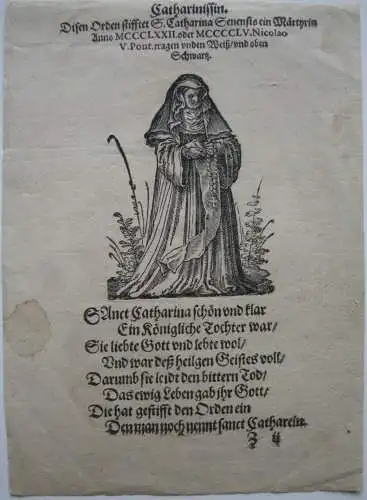 Catharinissin.
Disen Orden stifftet S. Catharina Senensis ein Märtyrin
Anno MCCCLXXII. oder MCCCCLV. Nicolao
V. Pont. tragen vnden Weiß/ vnd oben
Schwartz.
SAnct Catharina schön vnd klar
Ein Königliche Tochter war/
Sie liebte Gott vnd lebte wol/
Vnd war deß heilgen Geistes voll/
Darumb sie leidt den bittern Tod/
Das ewig Leben gab jhr Gott/
Die hat gestifft den Orden ein
Den man noch nennt sanct Catharein.
Z ij